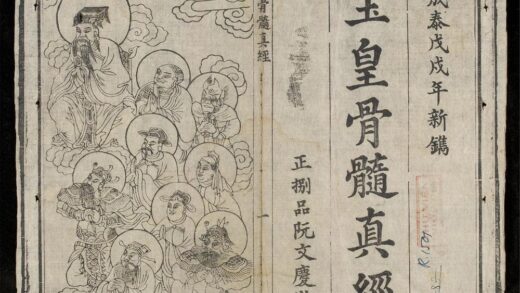 成泰戊戌年新鐫
玉皇骨髓真經
正捌品阮文慶
骨髓真經
一